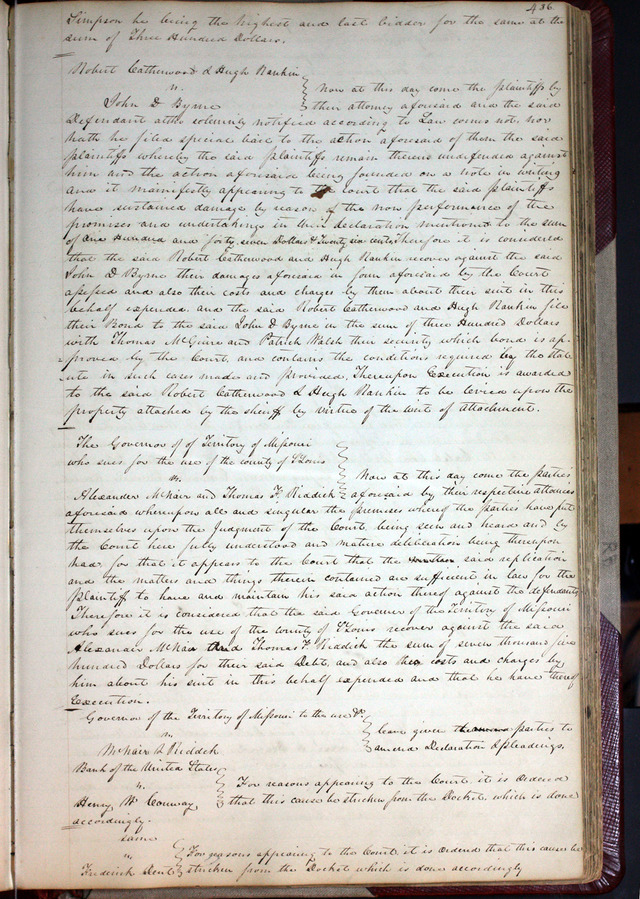 436
Simpson he being the highest and last bidder for the same at the
sum of Three Hundred Dollars.
Robert Catherwood & Hugh Rankin
vs.
John D Byrne
Now at this day come the plaintiffs by
their attorney aforesaid and the said
Defendant altho solemnly notified according to Law comes not, nor
hath he filed special bail to the action aforesaid of them the said
plaintiffs whereby the said plaintiffs remain therein undefended against
him and the action aforesaid being founded on a note in writing
and it manifestly appearing to the Court that the said plaintiffs
have sustained damage by reason of the non performance of the
promises and undertakings in their declaration mentioned to the sum
of One Hundred and forty seven Dollars & twenty six cents, Therefore it is considered
that the said Robert Catherwood and Hugh Rankin recover against the said
John D Byrne their damages aforesaid in form aforesaid by the Court
assessed and also their costs and charges by them about their suit in this
behalf expended and the said Robert Catherwood and Hugh Rankin file
their Bond to the said John D Byrne in the sum of three Hundred Dollars
with Thomas McGuire and Patrick Walsh their security which bond is ap-
proved by the Court and contains the conditions required by the stat
ute in such cases made and provided. Thereupon Execution is awarded
to the said Robert Catherwood & Hugh Rankin to be levied upon the
property attached by the sheriff by virtue of the writ of attachment.
The Governor of of Territory of Missouri
who sues for the use of the county of St Louis
vs.
Alexander McNair and Thomas F. Riddick
Now at this day come the parties
aforesaid by their respective attornies
aforesaid whereupon all and singular the premises whereof the parties have put
themselves upon the Judgment of the Court being seen and heard and by
the Court here fully understood and mature deliberation being thereupon
had, for that it appears to the Court that the said replication
and the matters and things therein contained are sufficient in law for the
plaintiff to have and maintain his said action thereof against the defendants
Therefore it is considered that the said Governor of the Territory of Missouri
who sues for the use of the county of St Louis recover against the said
Alexander McNair and Thomas F. Riddick the sum of seven thousand five
hundred Dollars for their said Debt and also the costs and charges by
him about his suit in this behalf expended and that he have thereof
Execution.
Governor of the Territory of Missouri to the use &c.
vs
McNair & Riddick
leave given parties to
amend Declaration & pleadings.
Bank of the United States
vs.
Henry W Conway
For reasons appearing to the Court it is Ordered
that this cause be stricken from the Docket which is done
accordingly.
same
vs
Frederick Dent
For reasons appearing to the Court it is ordered that this cause be
stricken from the Docket which is done accordingly